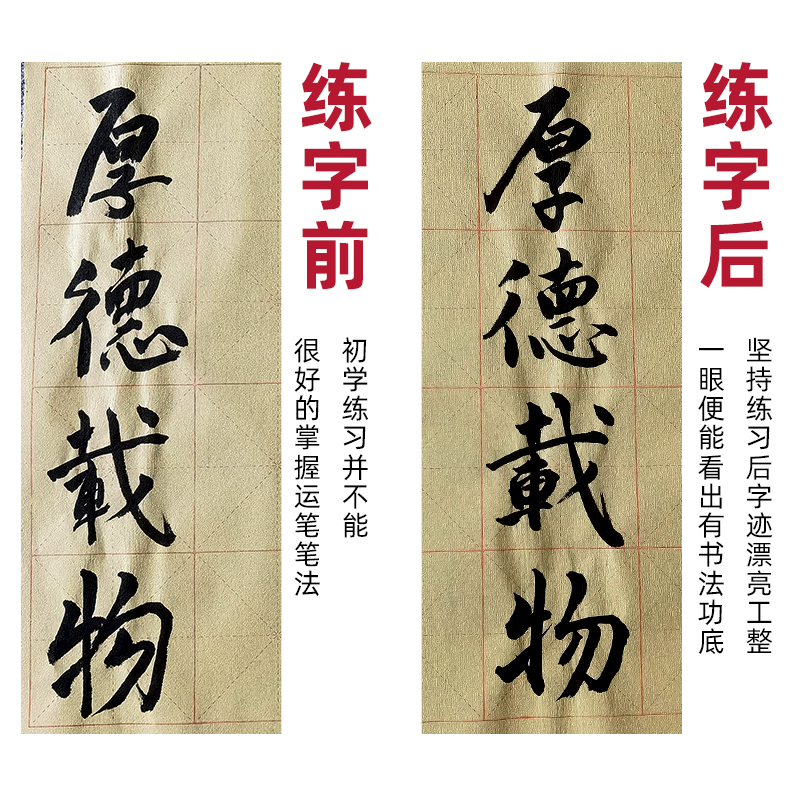 厚德載物
练字前
初学练习并不能
很好的掌握运笔笔法
厚德載物
练字后
坚持练习后字迹漂亮工整
一眼便能看出有书法功底